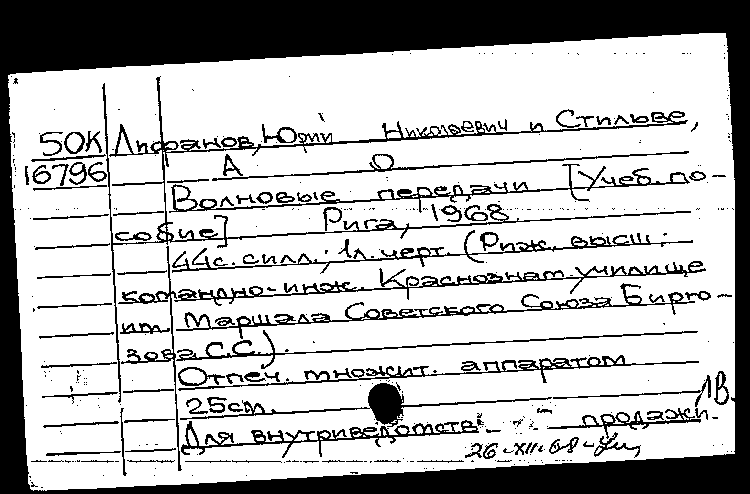 50К Лифанов, Юрий Николаевич и Стильве,
16796 А О
Волновые передачи [Учеб. по-
собие]. Рига, 1968
44с. силл.; 1л. черт. (Риж. высш.
командно-инж. Краснознам. училище
им. Маршала Советского Союза Бирю-
зова С.С.).
Отпеч. множит. аппаратом
25см. 1В.
Для внутриведомств. продажи.
26-XII-68